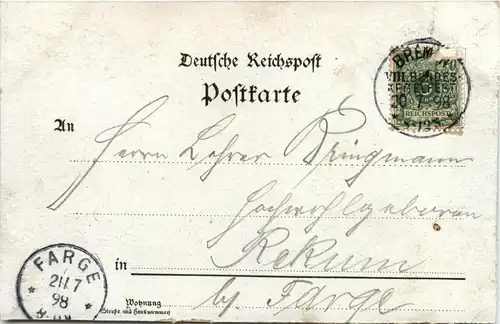 Deutsche Reichspost
Postkarte
BREMEN
VIII. BUNDES-
KEGELFEST
20 7 98
REICHSPOST
An
Herrn Lehrer Bringmann
Hochwohlgeboren
in Rekum
by. Farge
Wohnung
(Straße und Hausnummer)
FARGE
21.7
98